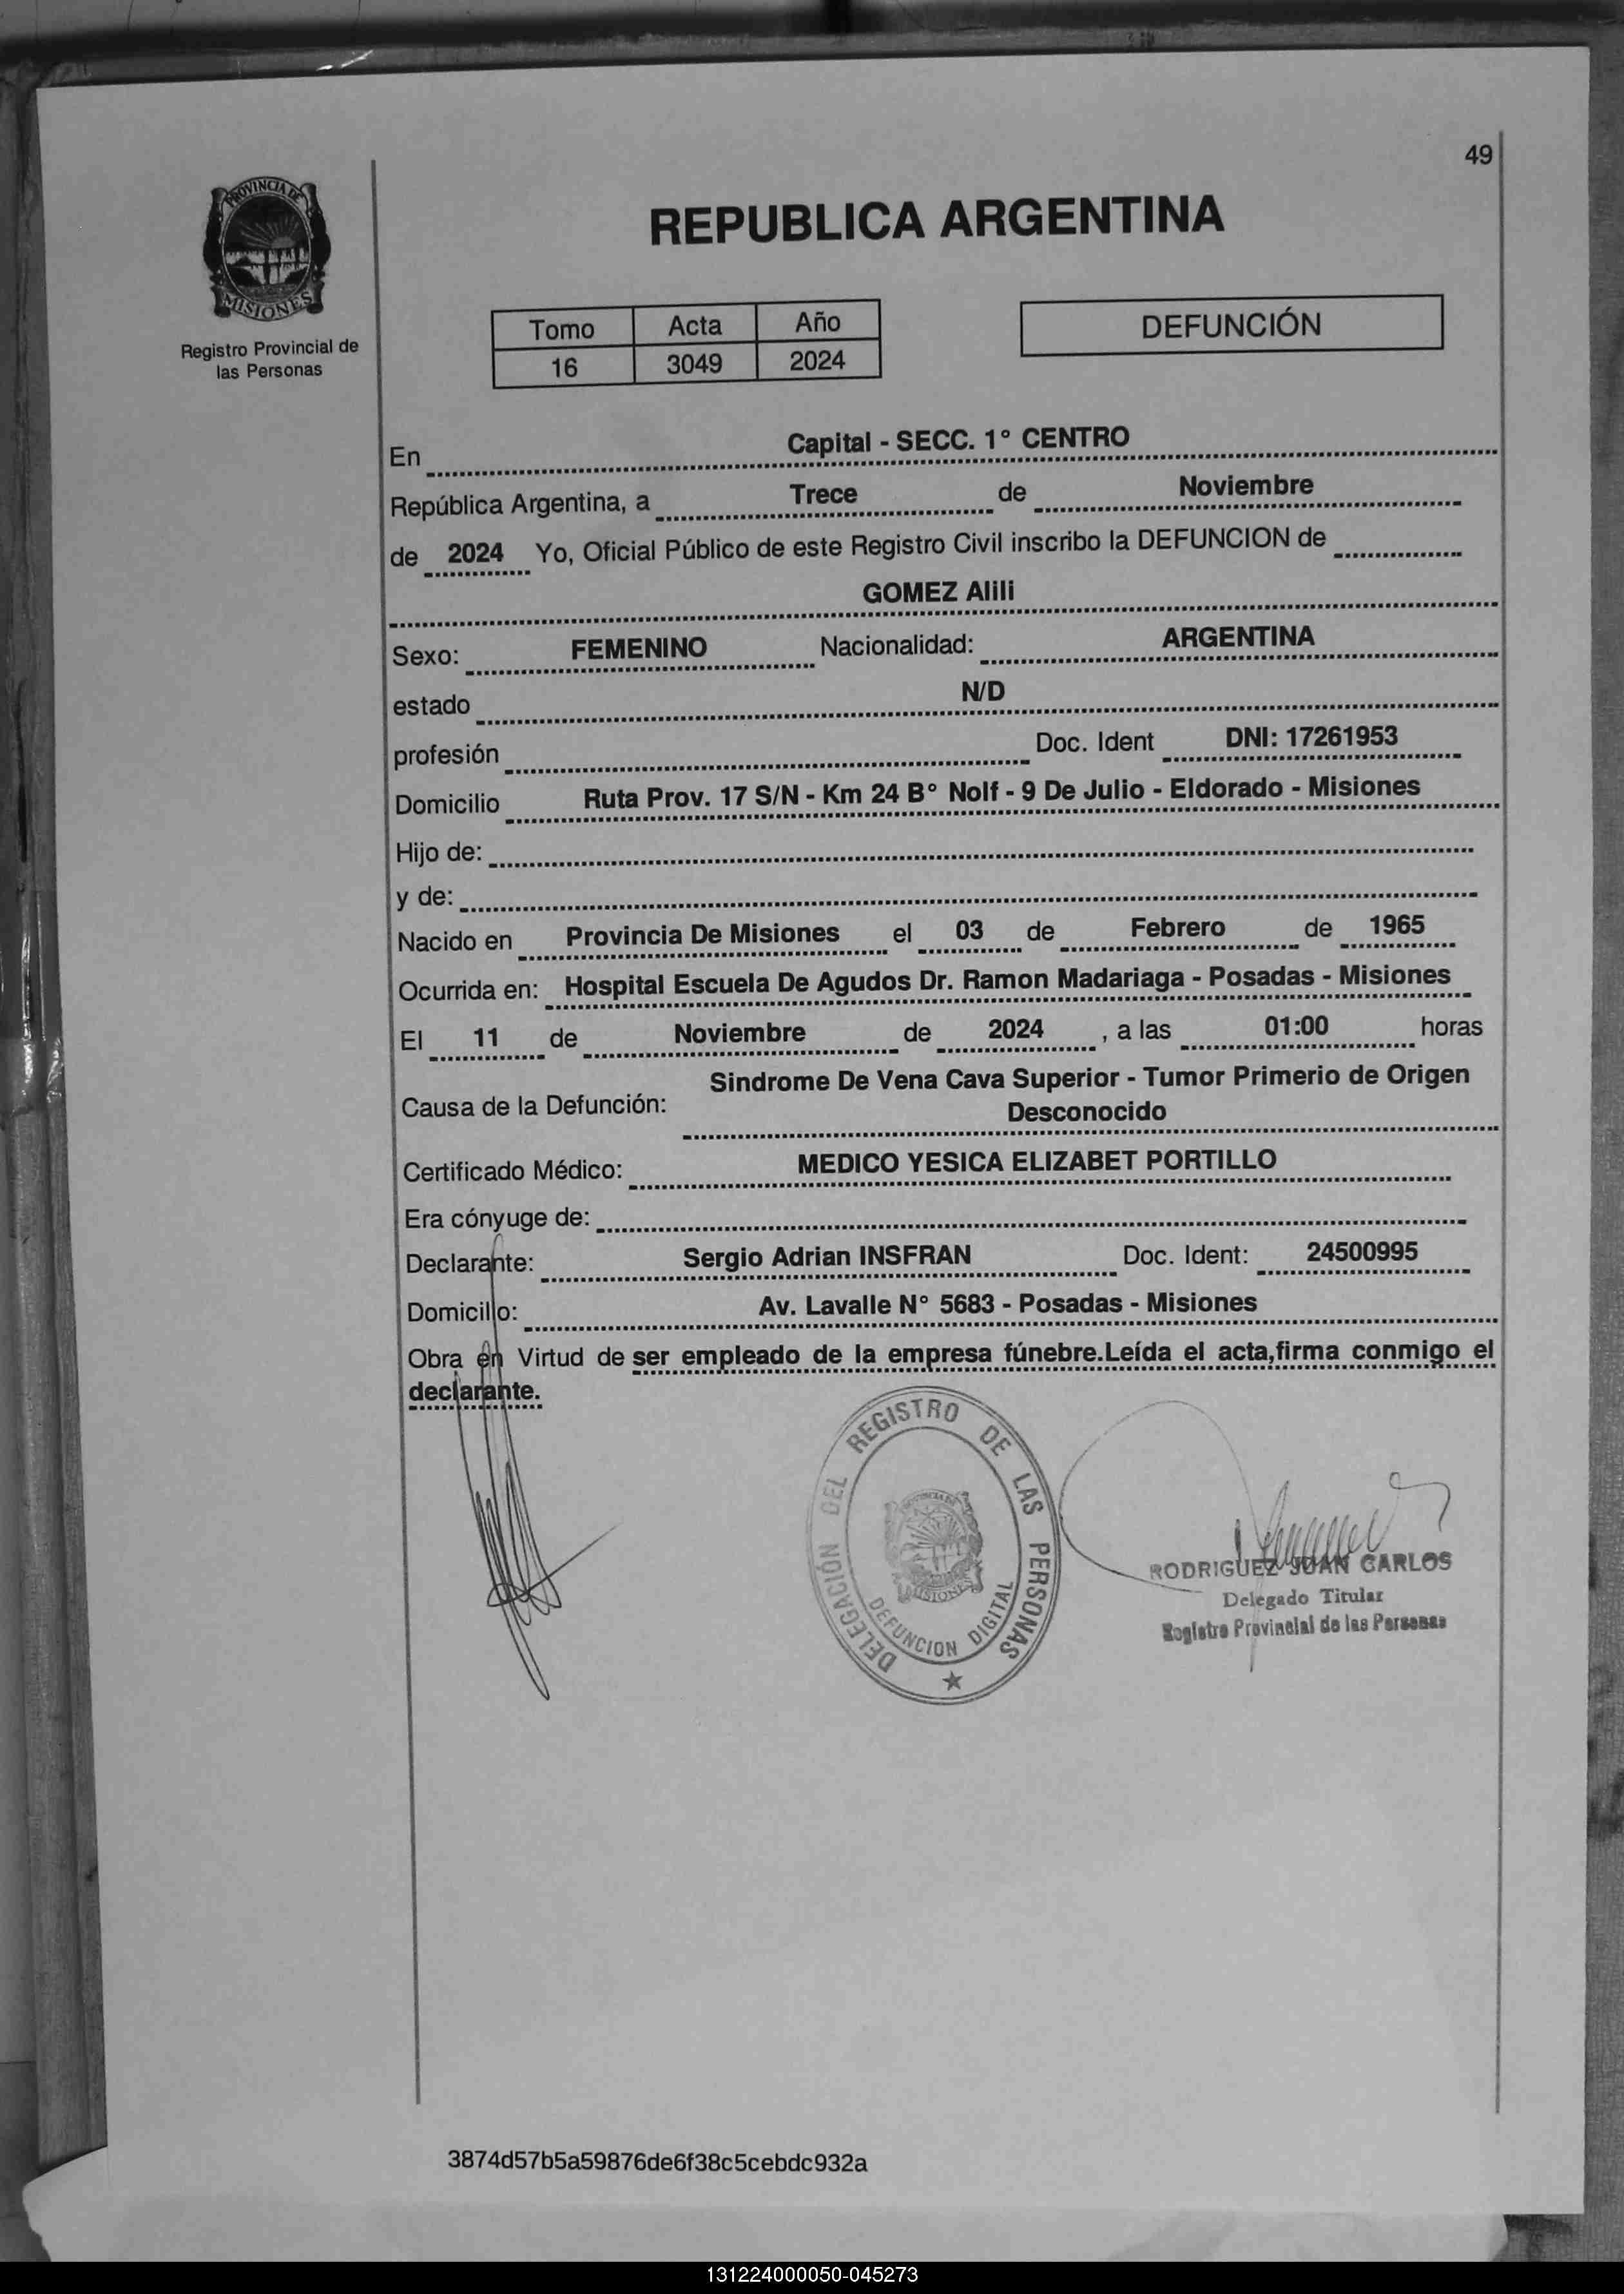 49
PROVINCIA DE
MISIONES
Registro Provincial de
las Personas
REPUBLICA ARGENTINA
Tomo Acta Año
16 3049 2024
DEFUNCIÓN
En Capital - SECC. 1° CENTRO
República Argentina, a Trece de Noviembre
de 2024 Yo, Oficial Público de este Registro Civil inscribo la DEFUNCION de
GOMEZ Alili
Sexo: FEMENINO Nacionalidad: ARGENTINA
estado N/D
profesión Doc. Ident DNI: 17261953
Domicilio Ruta Prov. 17 S/N - Km 24 B° Nolf - 9 De Julio - Eldorado - Misiones
Hijo de:
y de:
Nacido en Provincia De Misiones el 03 de Febrero de 1965
Ocurrida en: Hospital Escuela De Agudos Dr. Ramon Madariaga - Posadas - Misiones
El 11 de Noviembre de 2024 , a las 01:00 horas
Causa de la Defunción: Sindrome De Vena Cava Superior - Tumor Primerio de Origen
Desconocido
Certificado Médico: MEDICO YESICA ELIZABET PORTILLO
Era cónyuge de:
Declarante: Sergio Adrian INSFRAN Doc. Ident: 24500995
Domicilio: Av. Lavalle N° 5683 - Posadas - Misiones
Obra en Virtud de ser empleado de la empresa fúnebre.Leída el acta,firma conmigo el
declarante.
DELEGACIÓN DEL REGISTRO DE LAS PERSONAS
PROVINCIA DE
MISIONES
DEFUNCION DIGITAL
RODRIGUEZ JUAN CARLOS
Delegado Titular
Registro Provincial de las Personas
3874d57b5a59876de6f38c5cebdc932a
131224000050-045273